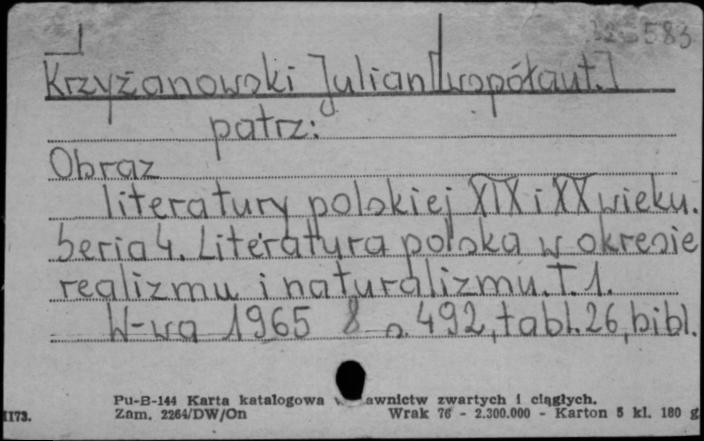 583
Krzyżanowski Julian [współaut.]
patrz:
Obraz
literatury polskiej XIX i XX wieku.
Seria 4. Literatura polska w okresie
realizmu i naturalizmu. T. 1.
W-wa 1965 8 s. 492, tabl. 26, bibl.
Pu-B-144 Karta katalogowa awnictw zwartych i ciągłych.
1173. Zam. 2264/DW/On Wrak 76 - 2.300.000 - Karton 5 kl. 180 g